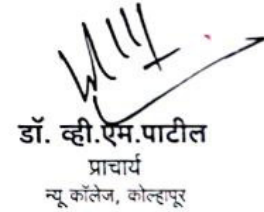 डॉ. व्ही.एम.पाटील
प्राचार्य
न्यू कॉलेज, कोल्हापूर